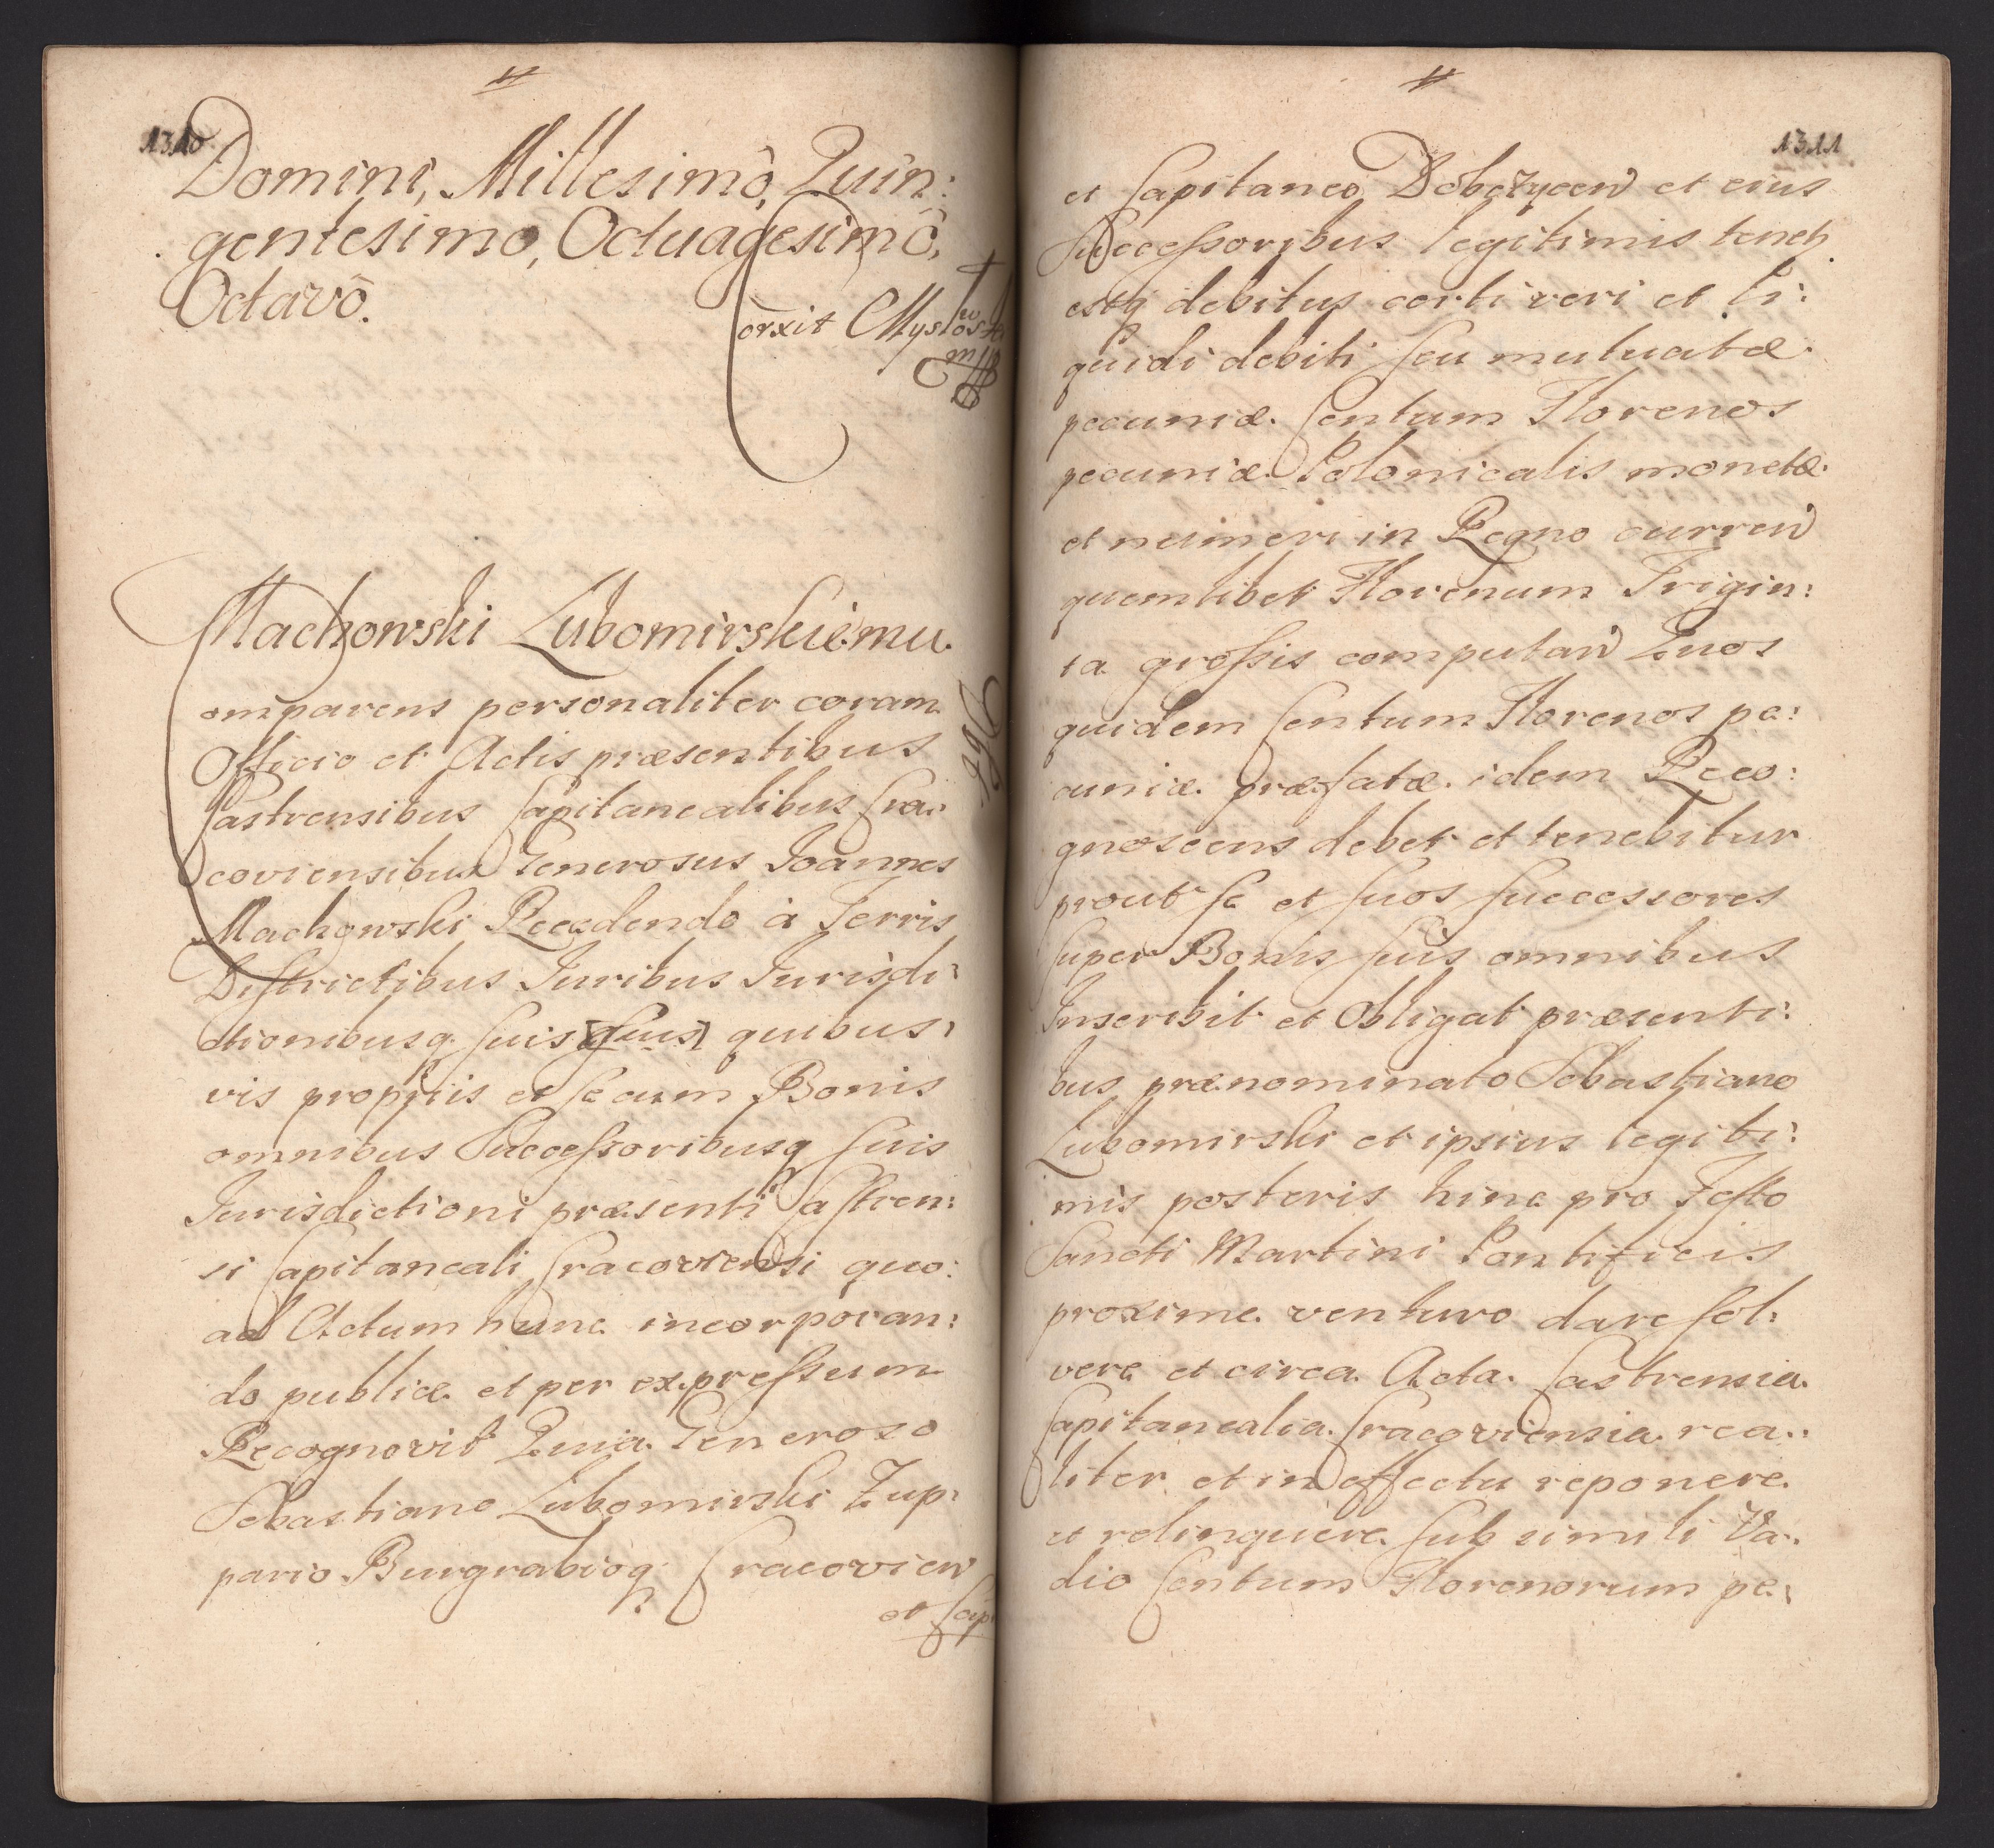 1310
Domini, Millesimô, Quin:
gentesimo, Octuagesimô,
Octavô.
Machowski Lubomirskiemu.
omparens personaliter coram
Officio et Actis præsentibus
Castrensibus Capitanealibus Cra:
coviensibus Generosus Joannes
Machowski Recedendo à Terris
Districtibus Juribus Jurisdi:
ctionibusq suis [suis] quibus:
vis proprijs et secum Bonis
omnibus Successoribusq suis
Jurisdictioni præsenti Castren:
si Capitaneali Cracoviensi quo:
ad Actum hunc incorporan:
do publice et per expressum
Recognovit Quia Generoso
Sebastiano Lubomirski Zup:
pario Burgrabioq Cracovien
et Cap:
1311
et Capitaneo Dobczycen et eius
Successoribus legitimis tenet
estq debitus certi veri et li:
quidi debiti seu mutuatæ
pecuniæ Centum Florenos
pecuniæ Polonicalis monetæ
et numeri in Regno curren
quemlibet Florenum Trigin:
ta grossis computan Quos
quidem Centum Florenos pe:
cuniæ præfatæ idem Reco:
gnoscens debet et tenebitur
prout se et suos successores
super Bonis suis omnibus
Inscribit et Obligat præsenti:
bus prænominato Sebastiano
Lubomirski et ipsius legiti:
mis posteris hinc pro Festo
Sancti Martini Pontificis
proxime venturo dare sol:
vere et circa Acta Castrensia
Capitanealia Cracoviensia rea:
liter et in effectu reponere
et relinquere sub simili Va:
dio Centum Florenorum pe: